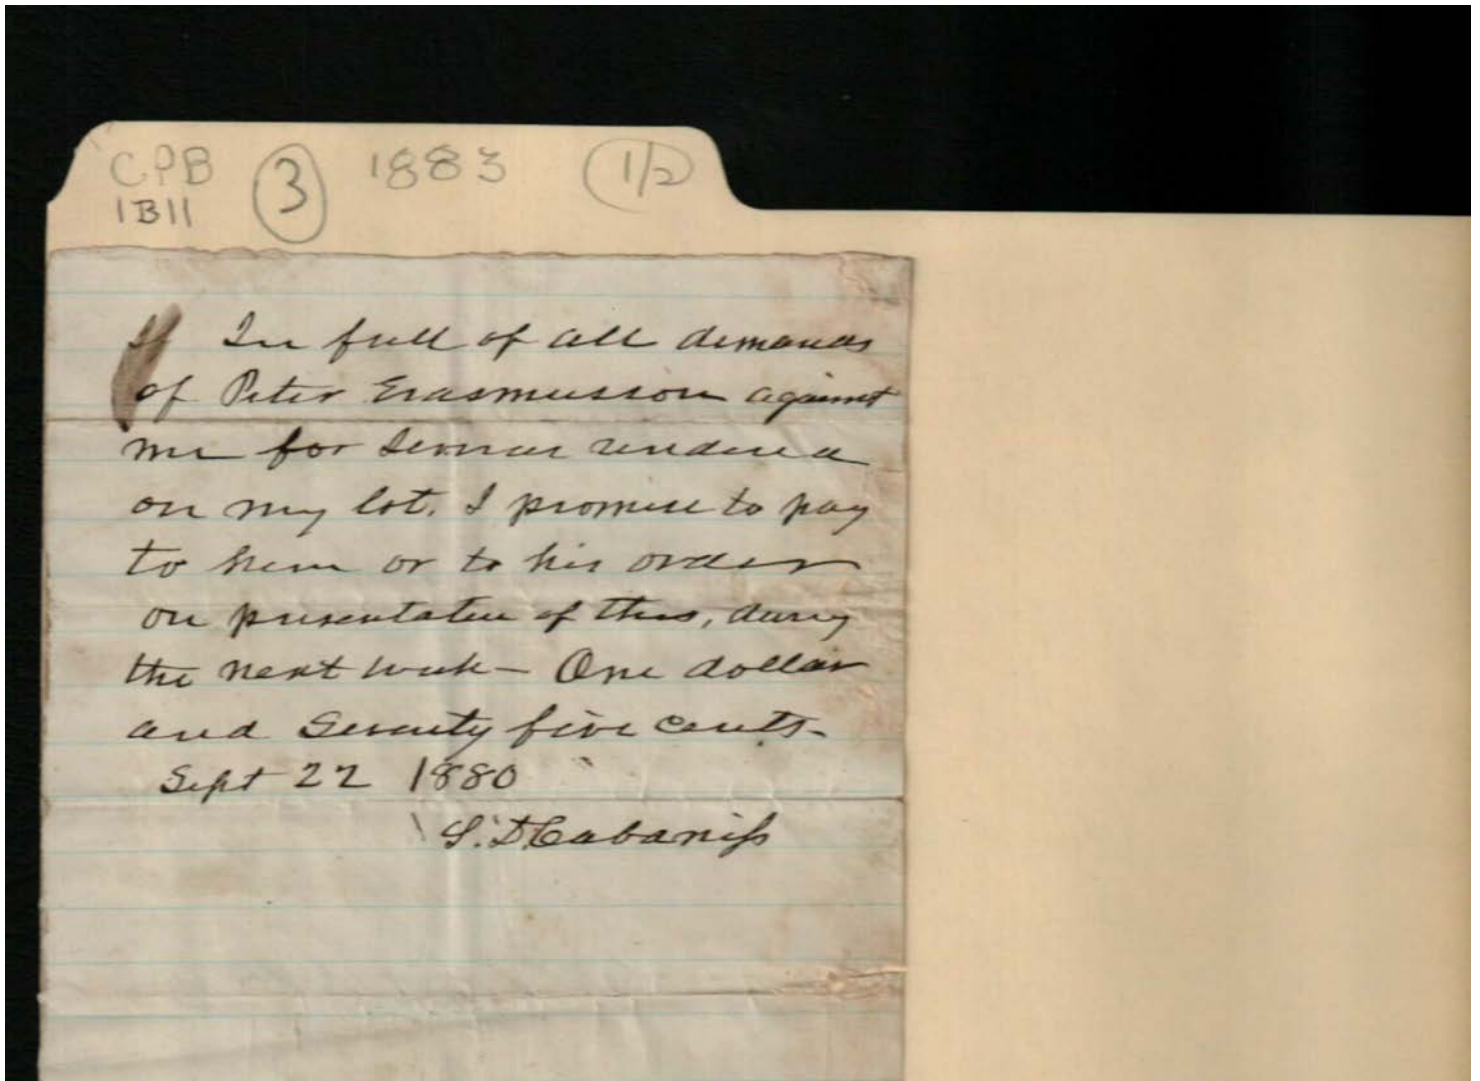 CPB 3 1883 1/2
1B11
In full of all demands
of Peter Erasmusson against
me for services rendered
on my lot. I promise to pay
to him or to his order
on presentation of this, during
the next week - One dollar
and Seventy five cents.
Sept 22 1880
S. D. Cabaniss